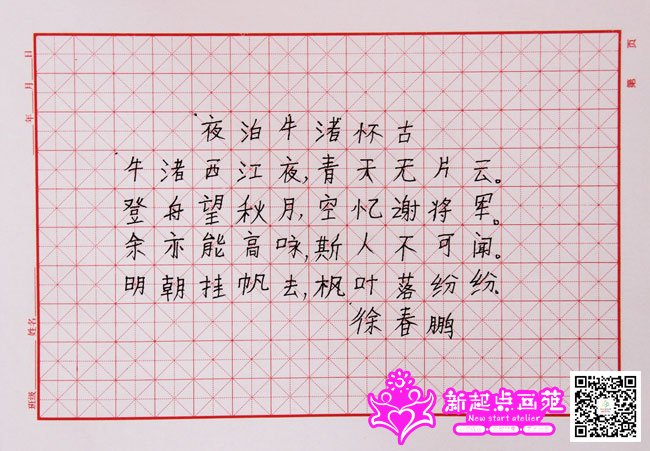 夜泊牛渚怀古
牛渚西江夜,青天无片云。
登舟望秋月,空忆谢将军。
余亦能高咏,斯人不可闻。
明朝挂帆去,枫叶落纷纷.
徐春鹏
第 页
年 月 日
姓名
班级
新起点画苑
New start atelier